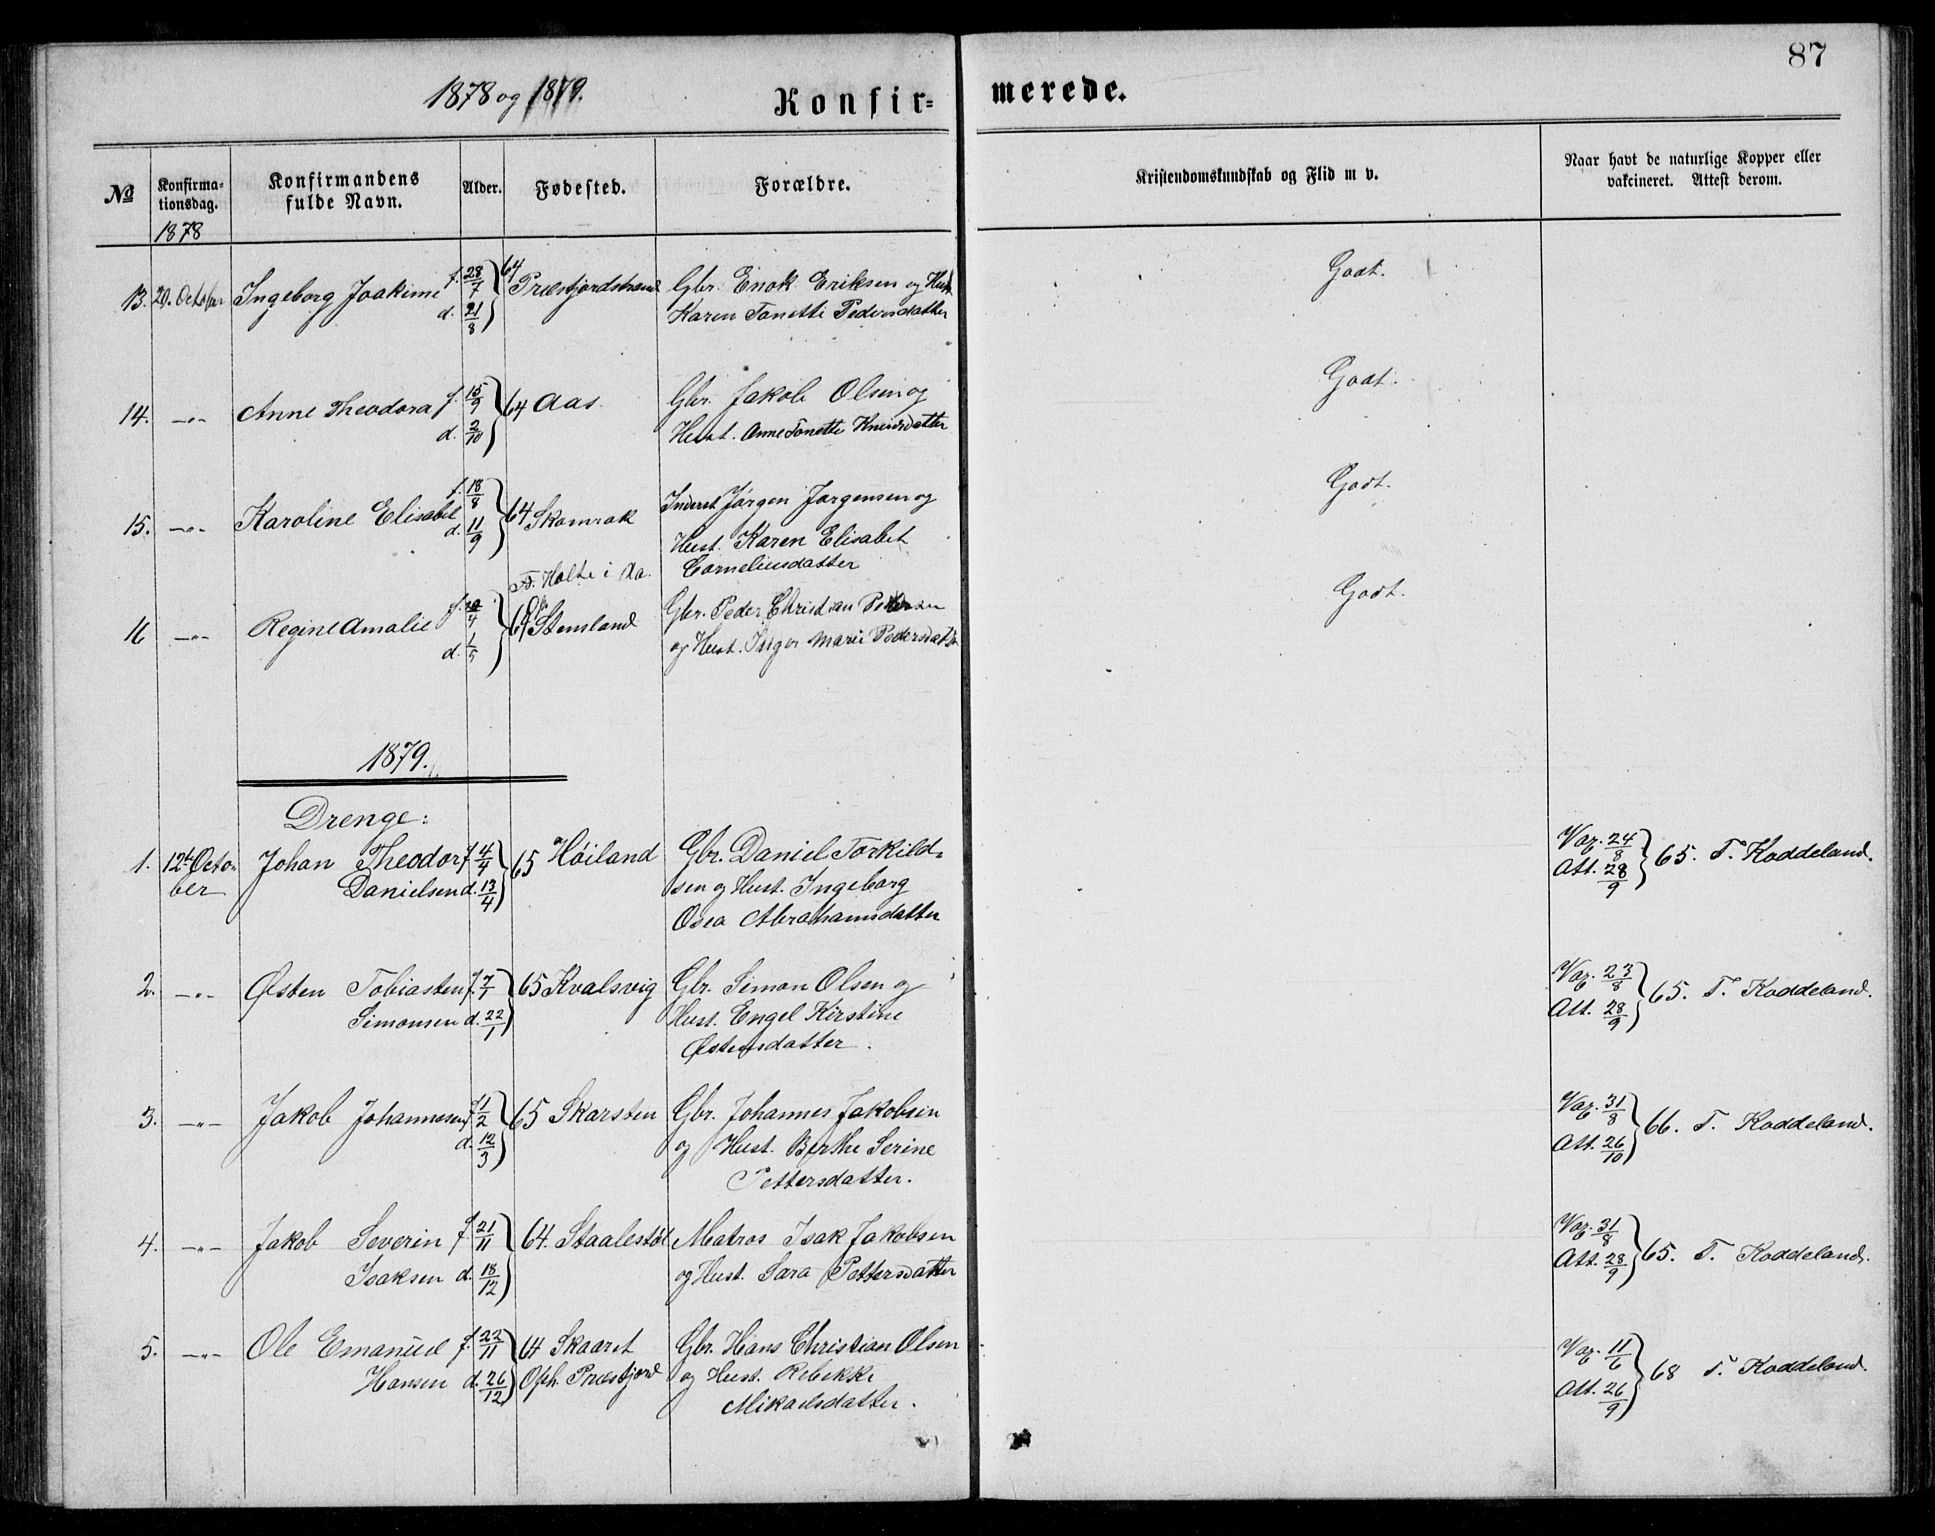 87
1878 og 1879.
Konfir=
merede.
№
Konfirma-
tionsdag.
Konfirmandens
fulde Navn.
Alder.
Fødested.
Forældre.
Kristendomskundskab og Flid m v.
Naar havt de naturlige Kopper eller
vakcineret. Attest derom.
1878
13. 20. October Ingeborg Joakime f. 28/7 64 Præstfjordstrand Gbr. Enok Eriksen og Hust.
d. 21/8 Karen Tonette Pedersdatter
Godt.
14. —„— Anne Theodora f. 15/9 64 Aas. Gbr. Jakob Olsen og
d. 2/10 Hust. Anne Tonette
Godt.
15. —„— Karoline Elisabet f. 18/8 64 Skomrak Inderst Jørgen Jørgensen og
d. 11/9 Hust. Karen Elisabet
Corneliusdatter
Godt.
F. Holte i
16 —„— Regine Amalie f. 4 64 Stensland Gbr. Peder Christian Pedersen
d. 1/5 og Hust. Inger Marie Pedersdatter
Godt.
1879.
Drenge:
1. 12te Octo- Johan Theodor f. 4/4 65 Høiland Gbr. Daniel Torkild=
ber Danielsen d. 13/4 sen og Hust. Ingeborg
Osea Abrahamsdatter
Vaz. 24/8 65. T. Koddeland.
Att. 28/9
2. —„— Østen Tobias f. 7/1 65 Kvalsvig Gbr. Simon Olsen og
Simonsen d. 22/1 Hust. Engel Kirstine
Østensdatter.
Vaz. 23/8 65. T. Koddeland.
Att. 28/9
3. —„— Jakob Johannesen f. 2 65 Skarsten Gbr. Johannes Jakobsen
d. 12/3 og Hust. Berthe Serine
Pettersdatter.
Vaz. 31/8 66. T. Koddeland.
Att. 26/10
4. —„— Jakob Severin f. 21/11 64. Staalestøl Matros Isak Jakobsen
Isaksen d. 18/12 og Hust. Sara Pettersdatter
Vaz. 31/8 65. T. Koddeland.
Att. 28/9
5. —„— Ole Emanuel f. 22/11 64 Skaaret Gbr. Hans Christian Olsen
Hansen d. 26/12 Oph. Præstfjord og Hust. Rebekke
Mikaelsdatter.
Vaz. 11/6 68 T. Koddeland.
Att. 26/9